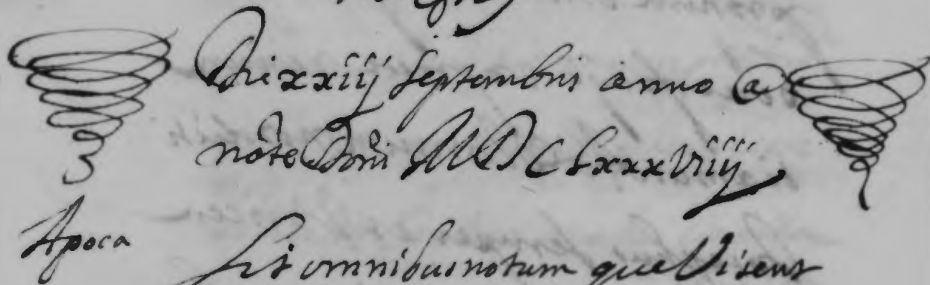 Die xxiij Septembris anno @
nate Dni M D C Lxxxviiij
Apoca Sit omnibus notum que Visent